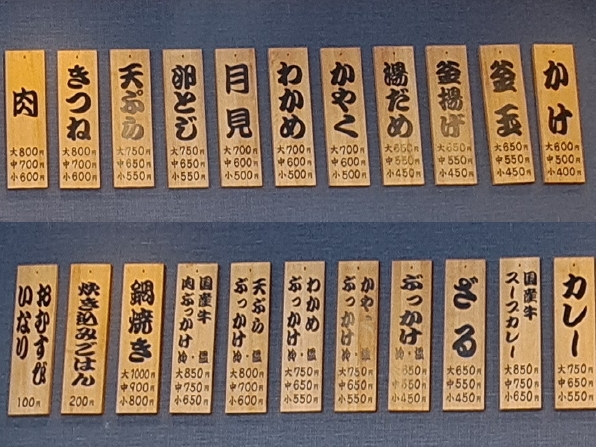 かけ
大600円
中500円
小400円
釜玉
大650円
中550円
小450円
釜揚げ
大650円
中550円
小450円
湯だめ
大650円
中550円
小450円
かやく
大700円
中600円
小500円
わかめ
大700円
中600円
小500円
月見
大700円
中600円
小500円
卵とじ
大750円
中650円
小550円
天ぷら
大750円
中650円
小550円
きつね
大800円
中700円
小600円
肉
大800円
中700円
小600円
カレー
大750円
中650円
小550円
国産牛
スープカレー
大850円
中750円
小650円
ざる
大650円
中550円
小450円
ぶっかけ
冷・温
大650円
中550円
小450円
かやく
ぶっかけ
冷・温
大750円
中650円
小550円
わかめ
ぶっかけ
冷・温
大750円
中650円
小550円
天ぷら
ぶっかけ
冷・温
大800円
中700円
小600円
国産牛
肉ぶっかけ
冷・温
大850円
中750円
小650円
鍋焼き
大1000円
中900円
小800円
炊き込みごはん
200円
おむすび
いなり
100円